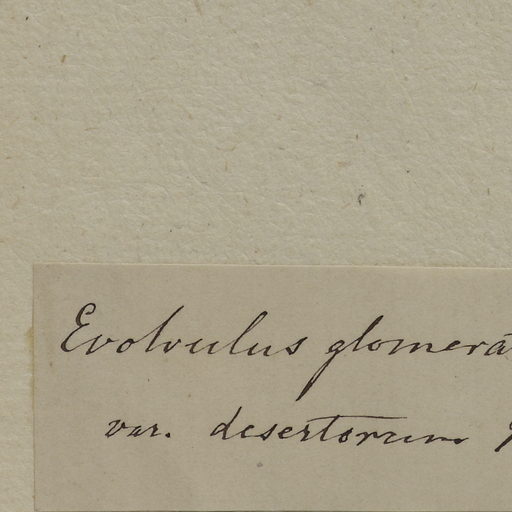 Evolvulus glomera
var. desertorum